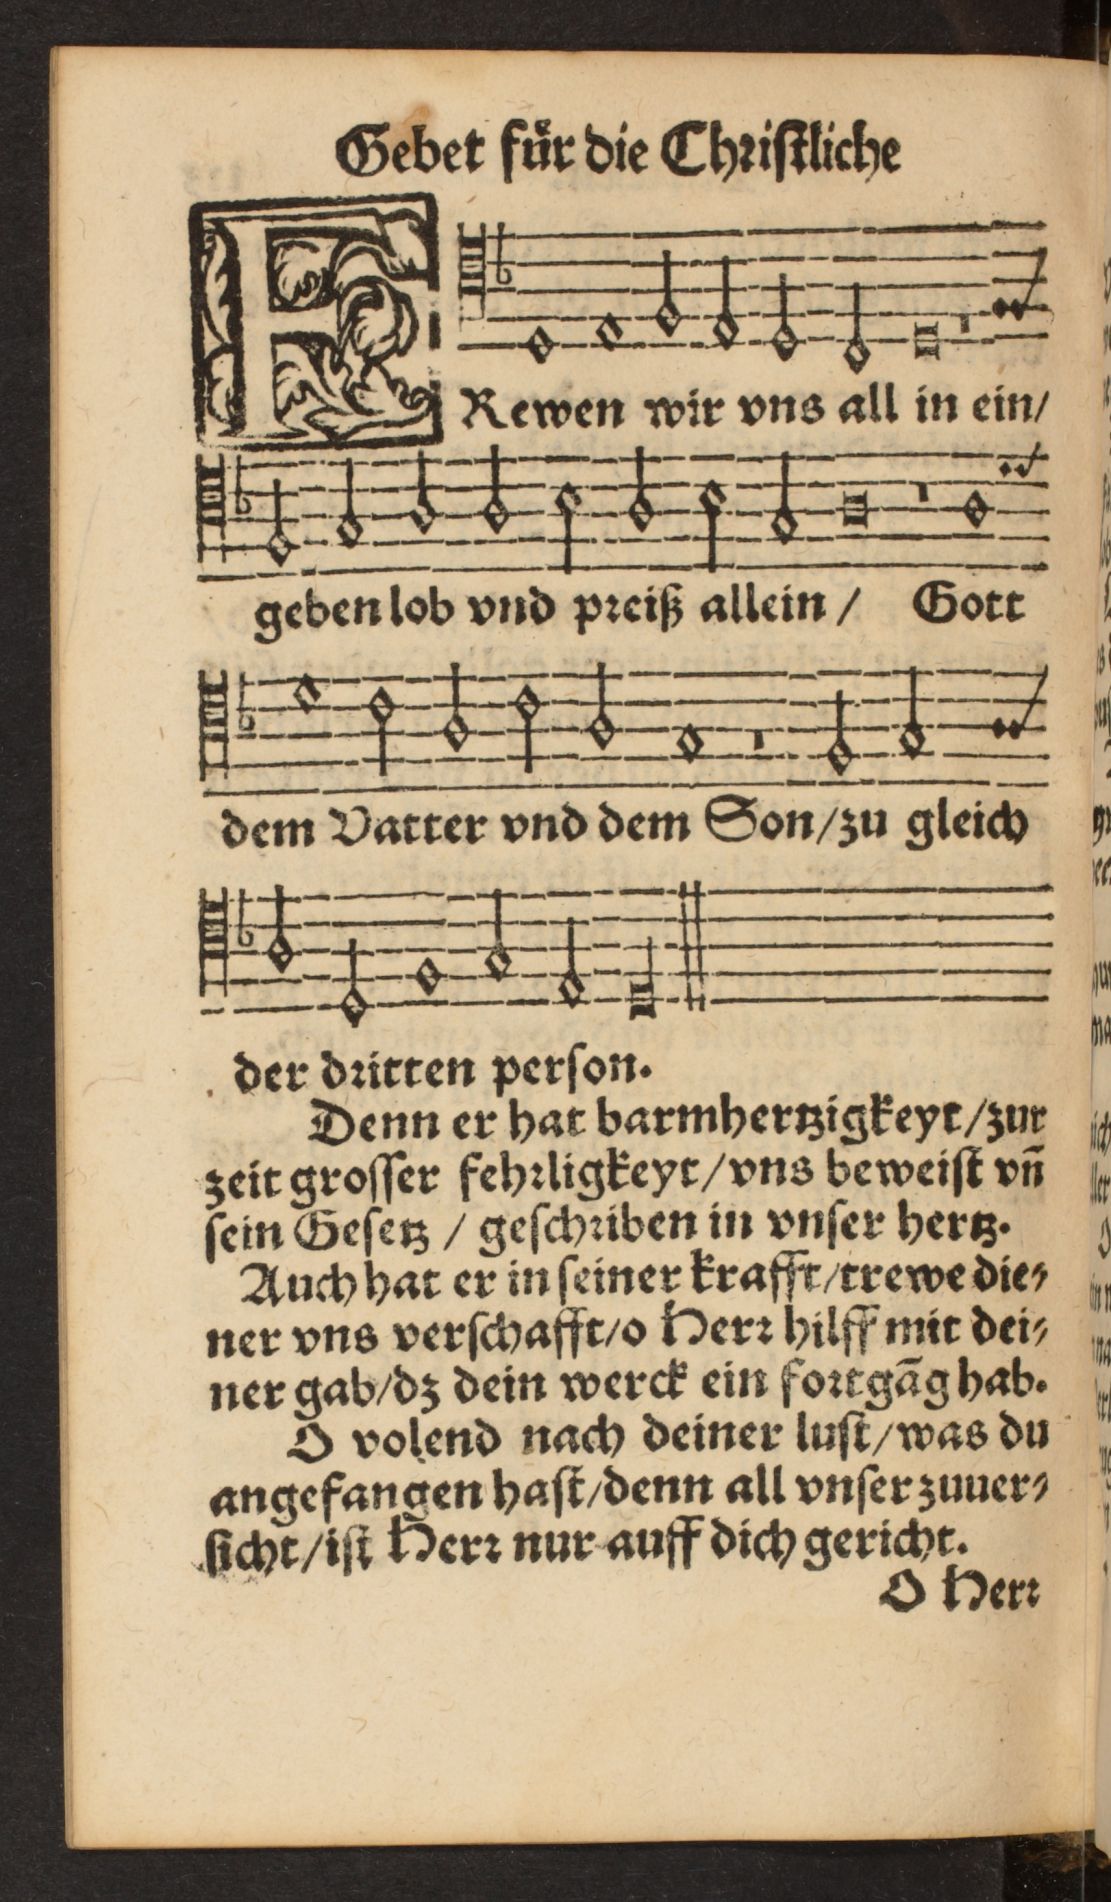 Gebet fuͤr die Chriſtliche
FRewen wir vns all in ein/
geben lob vnd preiß allein / Gott
dem Vatter vnd dem Son/zu gleich
der dritten perſon.
Denn er hat barmhertzigkeyt/zur
zeit groſſer fehrligkeyt/vns beweiſt vñ
ſein Geſetz / geſchriben in vnſer hertz.
Auch hat er in ſeiner krafft/trewe die⸗
ner vns verſchafft/o Herr hilff mit dei⸗
ner gab/dz dein werck ein fortgãg hab.
O volend nach deiner luſt/was du
angefangen haſt/denn all vnſer zuuer⸗
ſicht/iſt Herr nur auff dich gericht.
O Herr